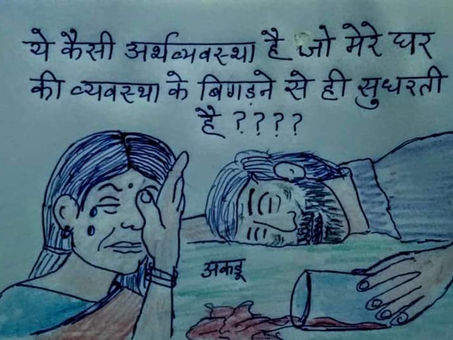 ये कैसी अर्थव्यवस्था है जो मेरे घर
की व्यवस्था के बिगड़ने से ही सुधरती
है ????
अकडू